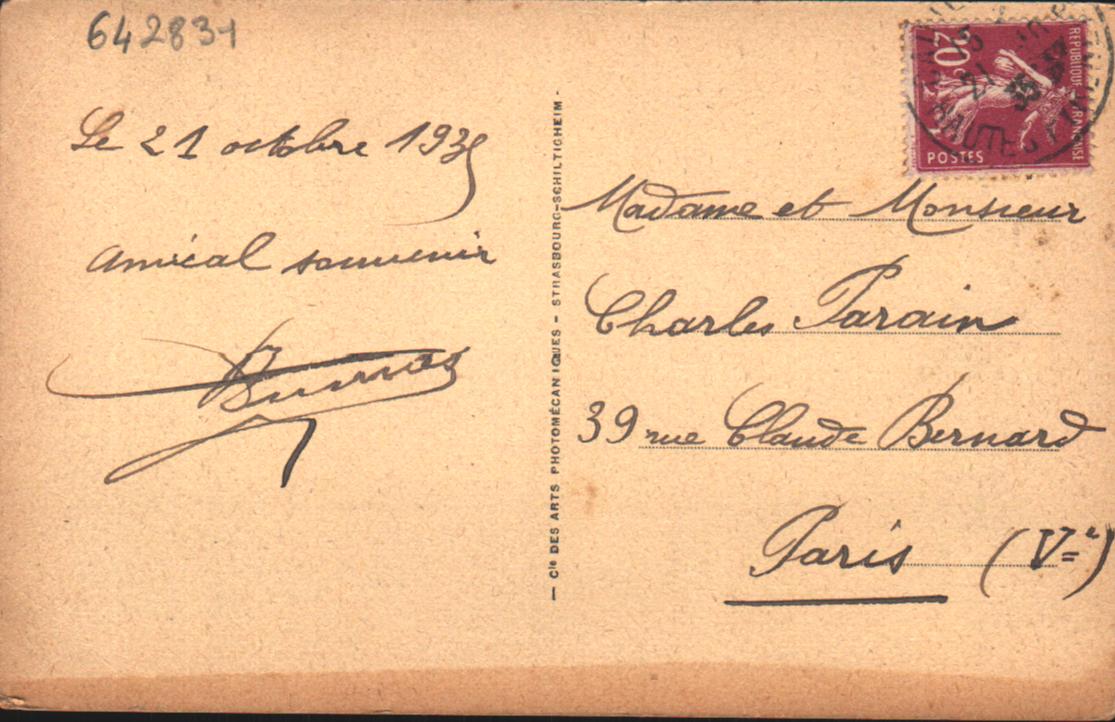 642831
Le 21 octobre 1935
Amical souvenir
Madame et Monsieur
Charles Parain
39 rue Claude Bernard
Paris (Ve)
— Cie DES ARTS PHOTOMÉCANIQUES - STRASBOURG-SCHILTIGHEIM -
20c
REPUBLIQUE FRANÇAISE
POSTES
21
35
HAUTES